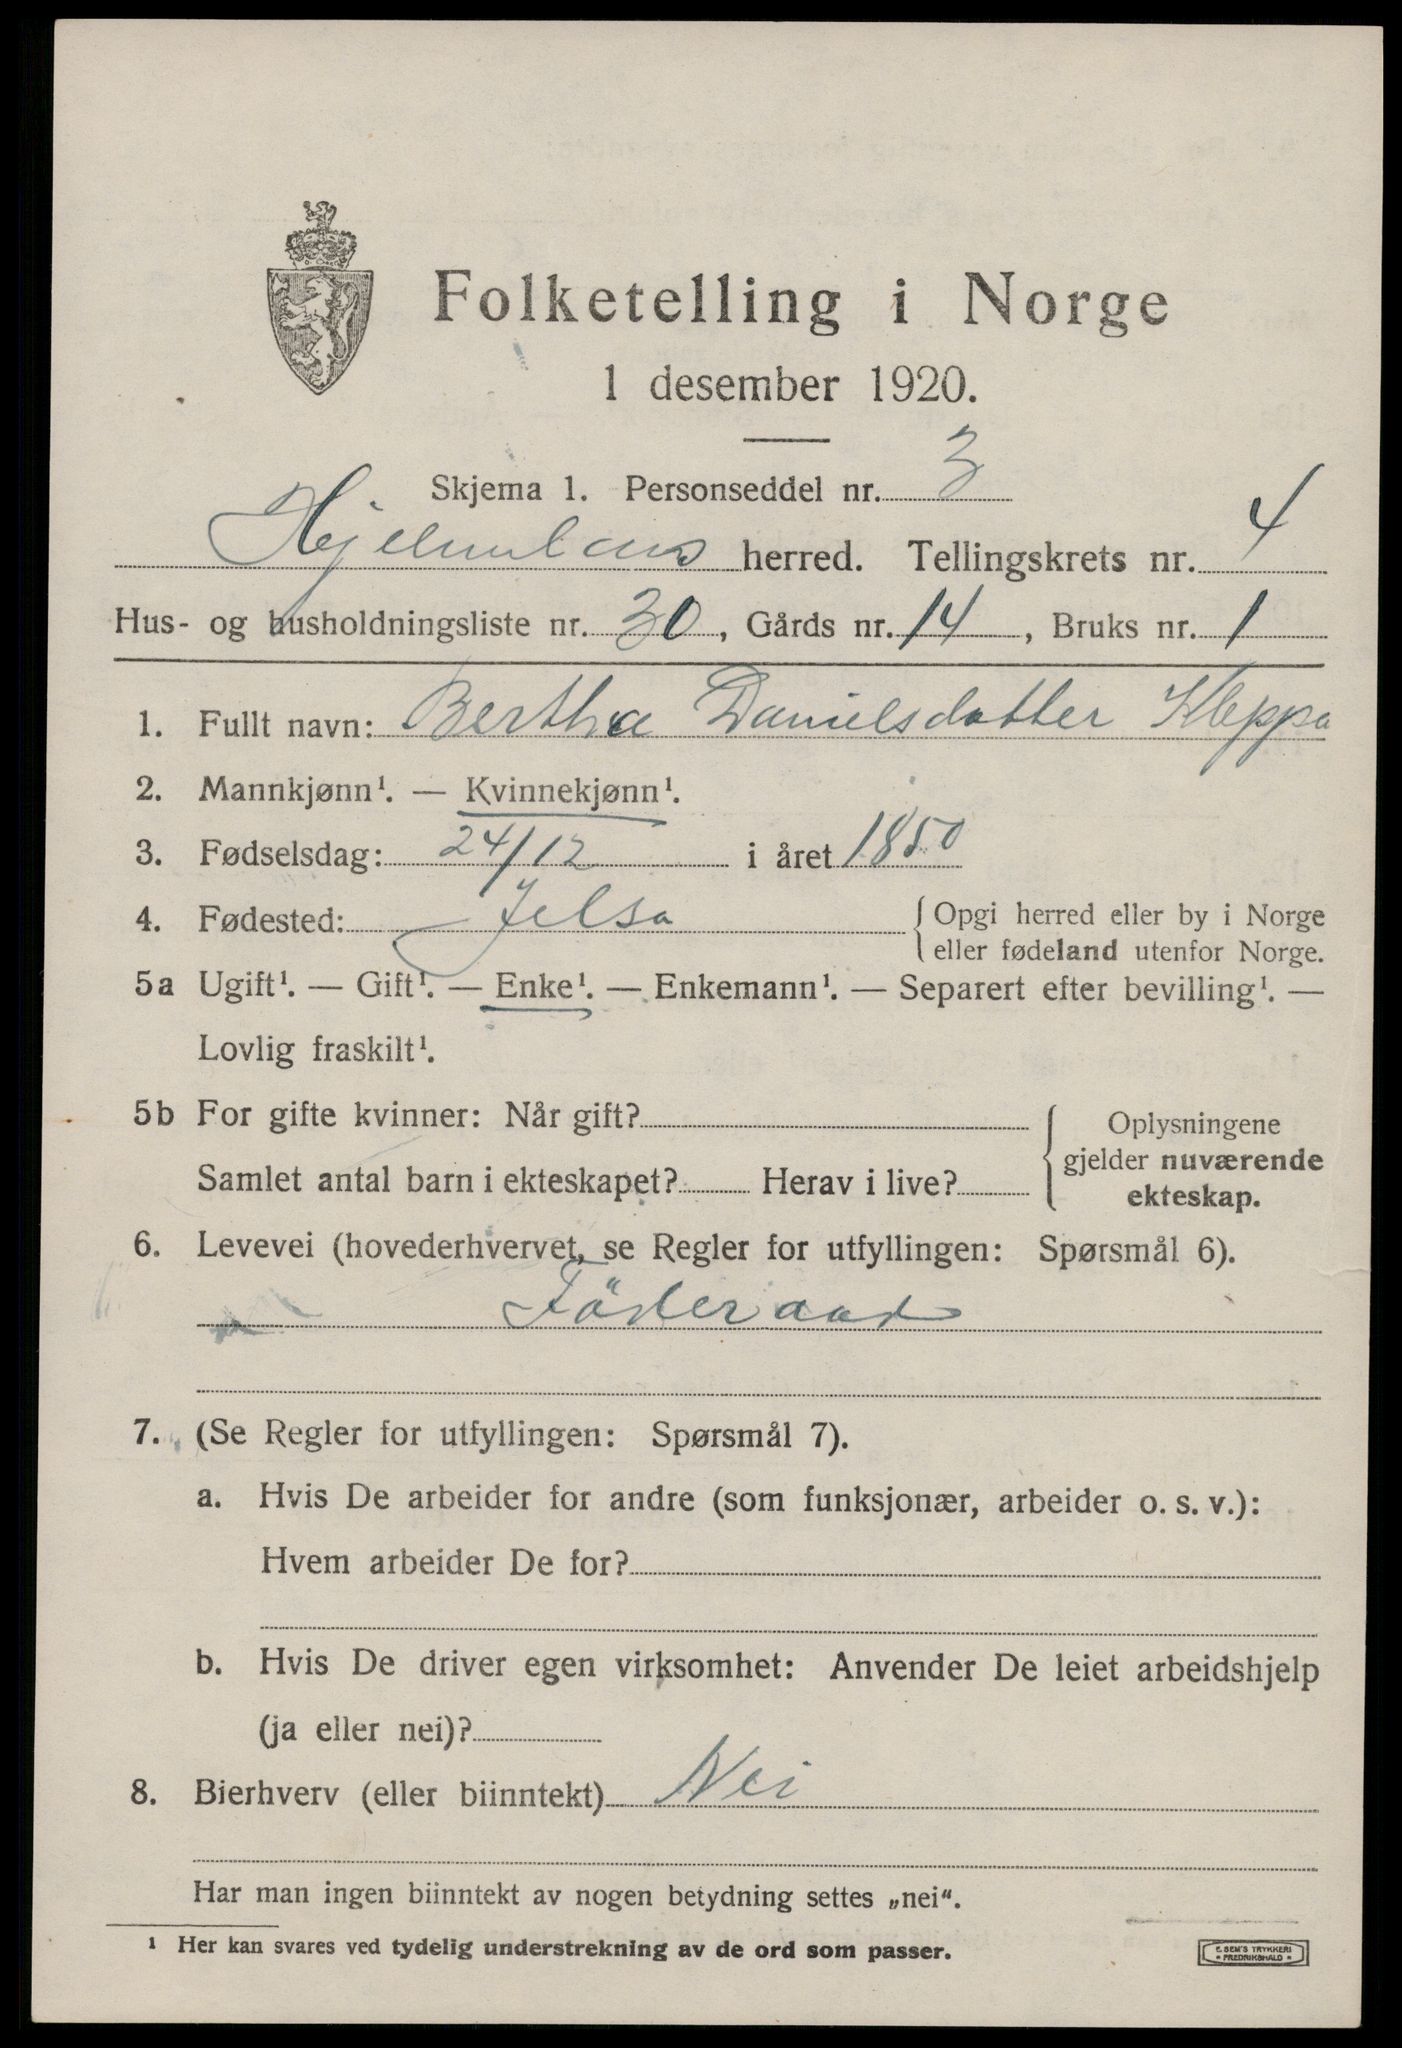 Folketelling i Norge
1 desember 1920.
Skjema 1. Personseddel nr. 3
Hjelmeland herred. Tellingskrets nr. 4
Hus- og husholdningsliste nr. 30, Gårds nr. 14, Bruks nr. 1
1. Fullt navn: Bertha Danielsdatter Kleppa
2. Mannkjønn¹. — Kvinnekjønn¹.
3. Fødselsdag: 24/12 i året 1850
4. Fødested: Jelsa { Opgi herred eller by i Norge
eller fødeland utenfor Norge.
5a Ugift¹. — Gift¹. — Enke¹. — Enkemann¹. — Separert efter bevilling¹. —
Lovlig fraskilt¹.
5b For gifte kvinner: Når gift?
Samlet antal barn i ekteskapet? Herav i live?
Oplysningene
gjelder nuværende
ekteskap.
6. Levevei (hovederhvervet, se Regler for utfyllingen: Spørsmål 6).
Föderaad
7. (Se Regler for utfyllingen: Spørsmål 7).
a. Hvis De arbeider for andre (som funksjonær, arbeider o. s. v.):
Hvem arbeider De for?
b. Hvis De driver egen virksomhet: Anvender De leiet arbeidshjelp
(ja eller nei)?
8. Bierhverv (eller biinntekt) Nei
Har man ingen biinntekt av nogen betydning settes „nei“.
¹ Her kan svares ved tydelig understrekning av de ord som passer.
E. SEM'S TRYKKERI
* FREDRIKSHALD *